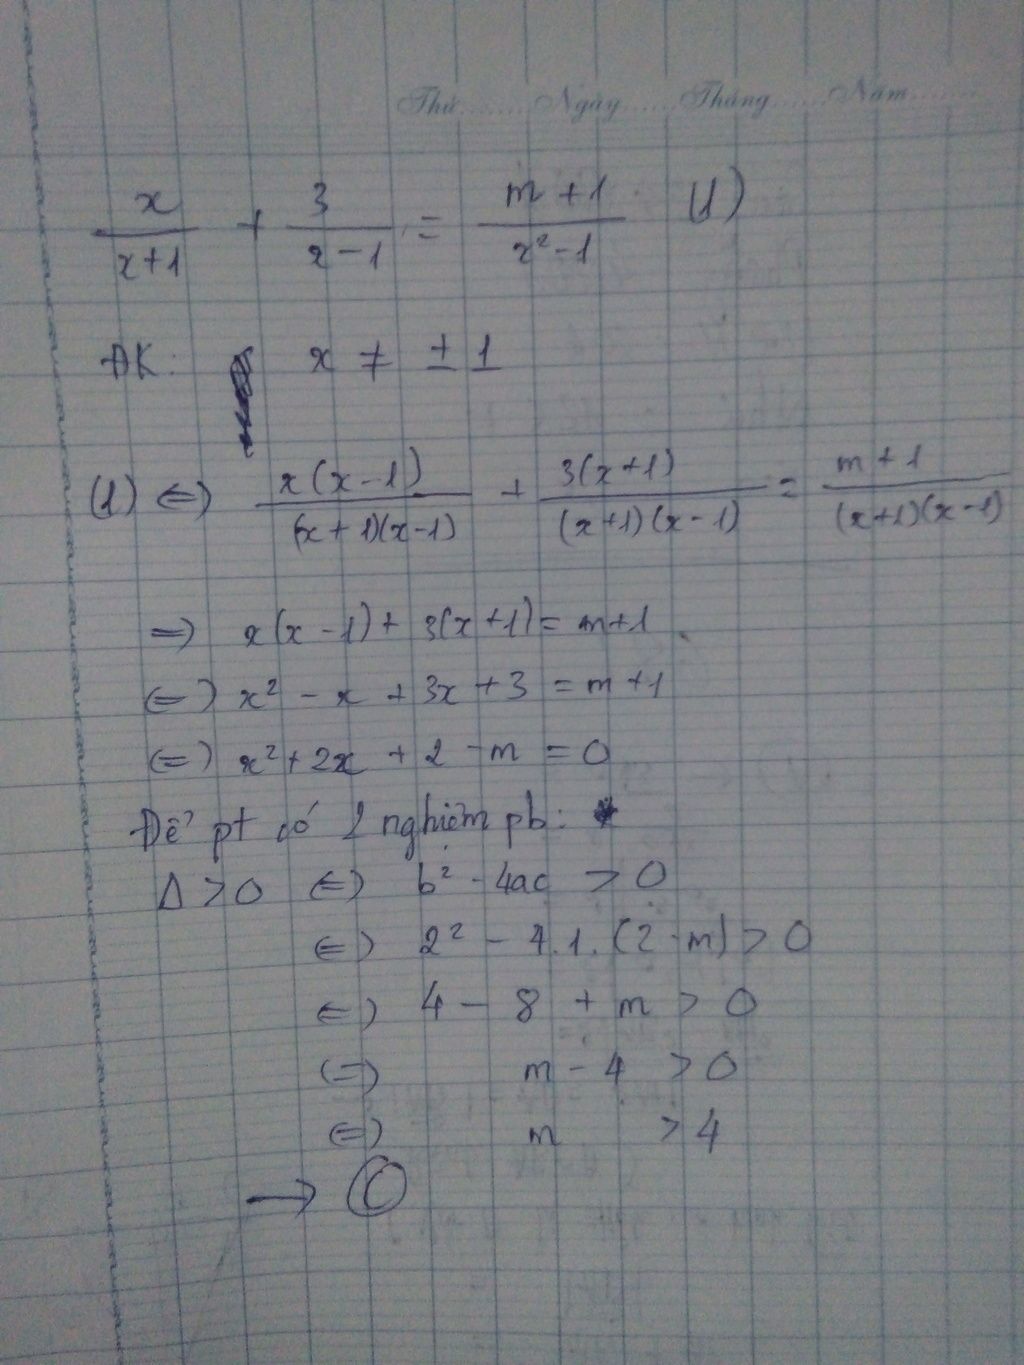 Thứ........Ngày......Tháng......Năm........
x/(x+1) + 3/(x-1) = (m+1)/(x²-1) (1)
ĐK: x ≠ ±1
(1) ⇔ x(x-1)/((x+1)(x-1)) + 3(x+1)/((x+1)(x-1)) = (m+1)/((x+1)(x-1))
⇒ x(x-1) + 3(x+1) = m+1
⇔ x² - x + 3x + 3 = m+1
⇔ x² + 2x + 2 - m = 0
Để pt có 2 nghiệm pb:
Δ > 0 ⇔ b² - 4ac > 0
⇔ 2² - 4.1.(2-m) > 0
⇔ 4 - 8 + m > 0
⇔ m - 4 > 0
⇔ m > 4
→ Ⓒ